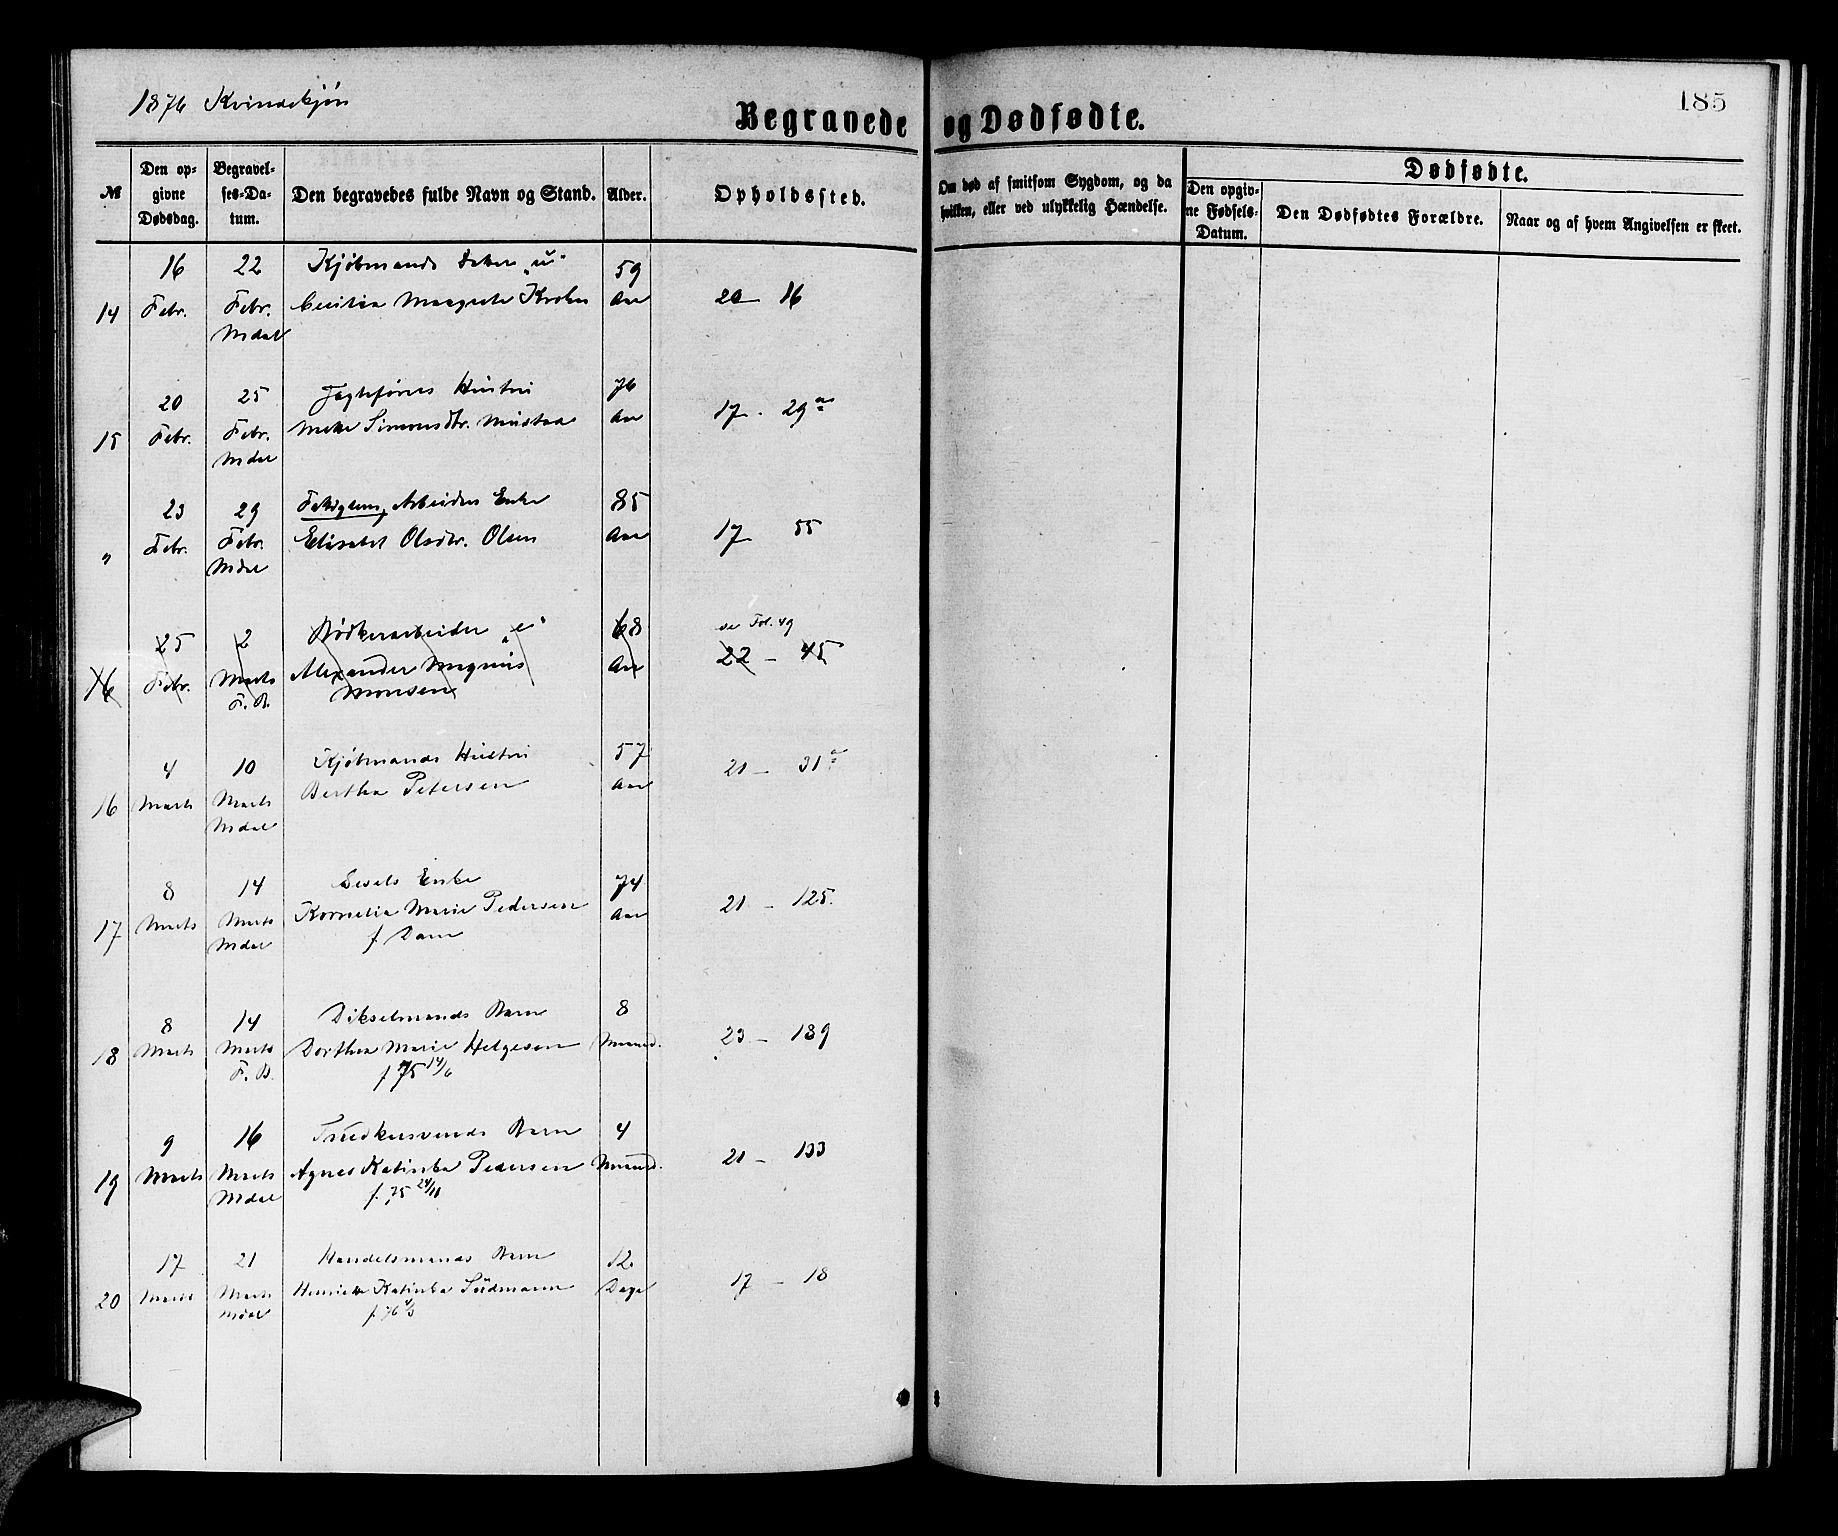 1876 Kvindekjøn
185
Begravede og Dødfødte.
№
Den opgivne Dødsdag.
Begravelses-Datum.
Den begravedes fulde Navn og Stand.
Alder.
Opholdssted.
Om død af smitsom Sygdom, og da hvilken, eller ved ulykkelig Hændelse.
Dødfødte.
Den opgivne Fødsels-Datum.
Den Dødfødtes Forældre.
Naar og af hvem Angivelsen er skeet.
16 22 Kjøbmands "u" 59
14 Febr. Febr. Margrete Aar 20 - 16
Mdal
20 25 Jagtefører Hustru 76
15 Febr. Febr. Mette Simonsdtr. Aar 17 - 29 a
Mdal
23 29 Fattiglem, Arbeider Enke 85
" Febr. Febr. Elisabet Olsdtr. Olsen Aar 17 55
Mdal
25 2 Bødkerarbeider "e" 68 se Fol. 49
16 Febr. Marts Alexander Magnus Aar 22 - 45
F. B. Monsen
4 10 Kjøbmands Hustru 57
16 Marts Marts Bertha Petersen Aar 21 - 31 a
Mdal
8 14 Enke 74
17 Marts Marts Kornelia Marie Pedersen Aar 21 - 125.
Mdal f. Dam
8 14 Dikselmands Barn 8
18 Marts Marts Dorthea Marie Helgesen Maaned. 23 - 139
F. B. f 75 14/6
9 16 Snedkersvends Barn 4
19 Marts Marts Agnes Katinka Pedersen Maaned. 21 - 133
Mdal f. 75 24/10
17 21 Handelsmands Barn 12
20 Marts Marts Henriette Katinka Südmann Dage 17 - 18
Mdal f. 76 /3